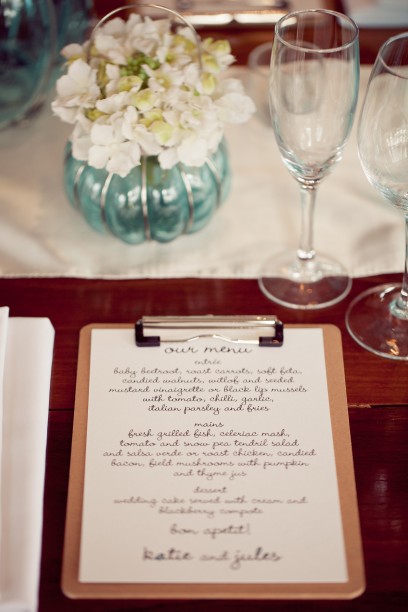 our menu
entrée
baby beetroot, roast carrots, soft feta,
candied walnuts, witlof and seeded
mustard vinaigrette or black lip mussels
with tomato, chilli, garlic,
italian parsley and fries
mains
fresh grilled fish, celeriac mash,
tomato and snow pea tendril salad
and salsa verde or roast chicken, candied
bacon, field mushrooms with pumpkin
and thyme jus
dessert
wedding cake served with cream and
blackberry compote
bon apetit!
katie and jules